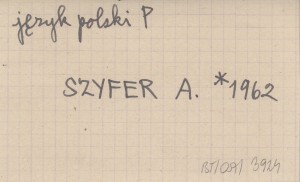 język polski P
SZYFER A. *1962
BJ/OR/ 3924